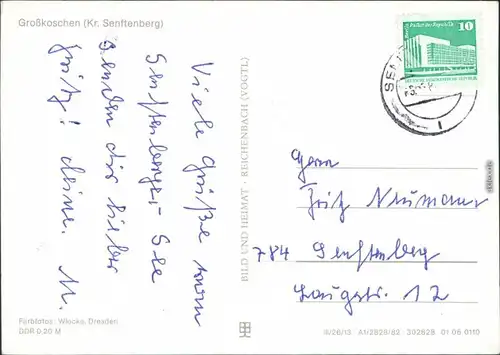 Großkoschen (Kr. Senftenberg)
Viele Grüße vom
Senftenberger-See
senden dir lieber
Fritz! deine. M.
BILD UND HEIMAT · REICHENBACH (VOGTL)
10
DEUTSCHE DEMOKRATISCHE REPUBLIK
SENF
Herrn
Fritz Neumann
784 Senftenberg
Langstr. 12
Farbfotos: Wlocke, Dresden
DDR 0,20 M
III/26/13 A1/2828/82 302828 01 08 0110